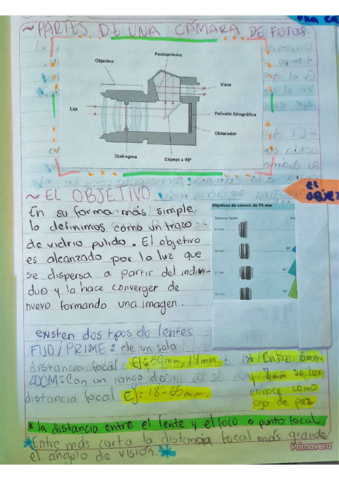 ~PARTES DE UNA CÁMARA DE FOTOS
Pentaprisma
Objetivo
Visor
Luz
Película fotográfica
Obturador
Diafragma
Espejo a 45º
~EL OBJETIVO
EL
OBJE
En su forma más simple
lo definimos como un trozo
de vidrio pulido. El objetivo
es alcanzado por la luz que
se dispersa a partir del indivi-
duo y la hace converger de
nuevo formando una imagen.
Objetivos de cámara de 35 mm
existen dos tipos de lentes
FIJO/PRIME: de una sola
distancia focal
ZOOM: Con un rango de
distancia focal EJ: 18-55mm.
* Entre
y 8mm se les
conoce como
ojo de pez
* la distancia entre el lente y el foco o punto focal.
* Entre más corta la distancia focal más grande
el ángulo de visión. *
Primavera